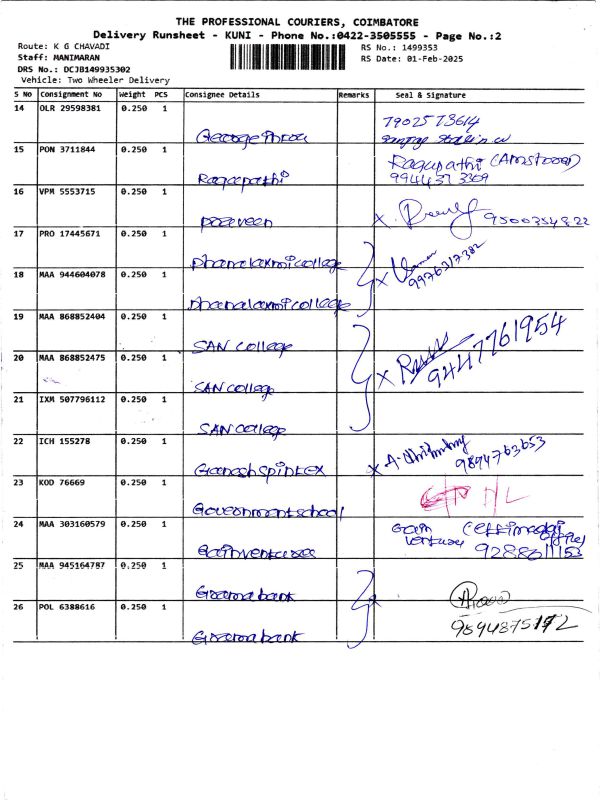 THE PROFESSIONAL COURIERS, COIMBATORE
Delivery Runsheet - KUNI - Phone No.:0422-3505555 - Page No.:2
Route: K G CHAVADI
RS No.: 1499353
Staff: MANIMARAN
RS Date: 01-Feb-2025
DRS No.: DCJB149935302
Vehicle: Two Wheeler Delivery
S No Consignment No Weight PCS Consignee Details Remarks Seal & Signature
14 OLR 29598381 0.250 1
7902573614
George
15 PON 3711844 0.250 1
Ragupathi
Ragupathi
9944373309
16 VPM 5553715 0.250 1
Praveen
9500354822
17 PRO 17445671 0.250 1
Dhanalaxmi college
9976317382
18 MAA 944604078 0.250 1
Dhanalaxmi college
19 MAA 868852404 0.250 1
SAN college
9447761954
20 MAA 868852475 0.250 1
SAN college
21 IXM 507796112 0.250 1
SAN college
22 ICH 155278 0.250 1
Ganesh Spintex
9894763653
23 KOD 76669 0.250 1
Government school
24 MAA 303160579 0.250 1
Gain ventures
Gain
ventures
9288011153
25 MAA 945164787 0.250 1
Grama bank
26 POL 6388616 0.250 1
Grama bank